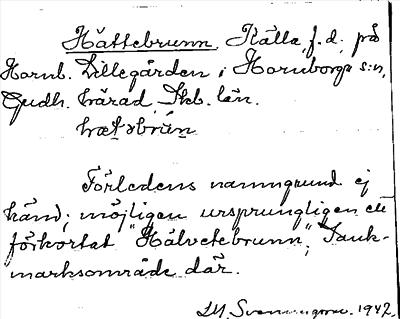 Hättebrunn. Källa, f.d., på
Hornb. Lillegården i Hornborga s:n,
Gudh. härad, Skb. län.
hæt̬ɘbrun

Förledens namngrund ej
känd; möjligen ursprungligen ett
förkortat "Hälvetebrunn", Sank-
marksområde där.